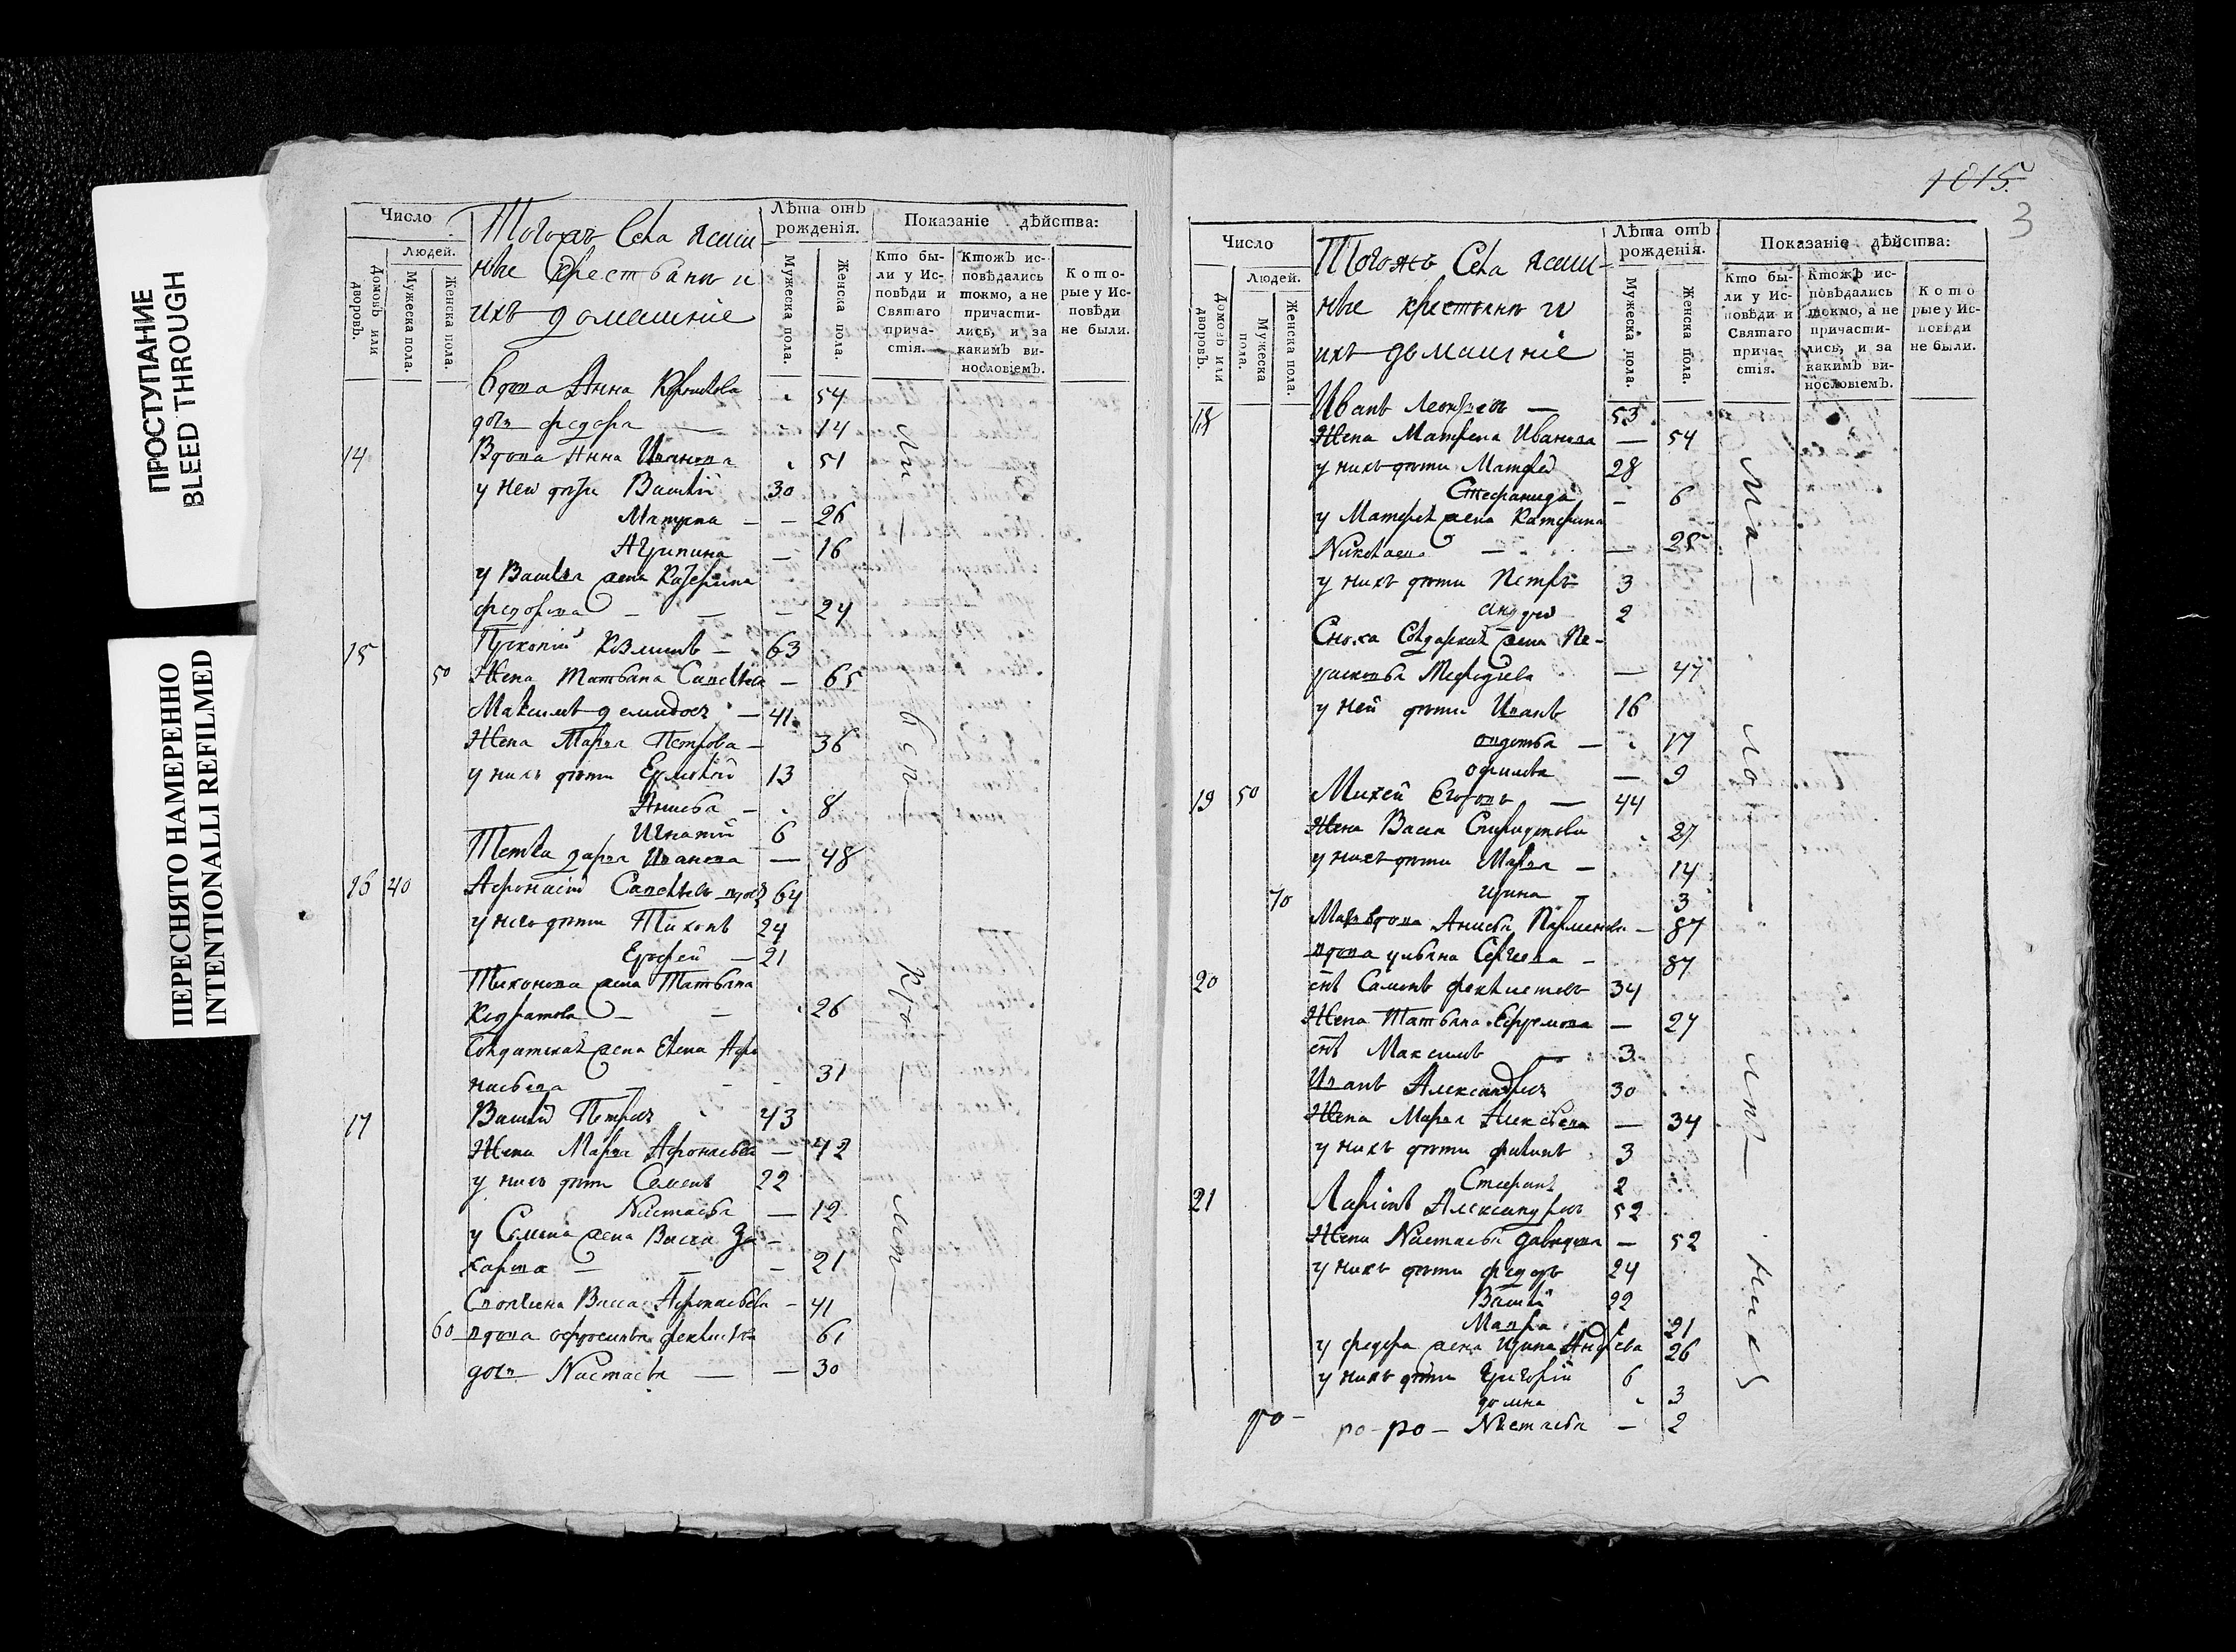 ПРОСТУПАНИЕ
BLEED THROUGH
ПЕРЕСНЯТО НАМЕРЕННО
INTENTIONALLI REFILMED
Число
Людей.
Домовъ или дворовъ.
Мужеска пола.
Женска пола.
Тогожъ Села ясаш-
ные крестьяне и
ихъ домашніе
Лѣта отъ рожденія.
Мужеска пола.
Женска пола.
Показаніе дѣйства:
Кто бы-
ли у Ис-
повѣди и
Святаго
прича-
стія.
Ктожъ ис-
повѣдались
токмо, а не
причасти-
лись, и за
какимъ ви-
нословіемъ.
Кото-
рые у Ис-
повѣди
не были.
Вдова Анна 54
дочь федора — 14
14 Вдова Анна Иванова 51
у неи дѣти Василій 30
Матрена — — 26
Агрипина — 16
у Василья жена Катерина
федорова — — — 24
15 Прокопій Козминъ — 63
50 Жена Татьяна Савельева — 65
Максимъ демидовъ — 41
Жена Марья Петрова — 36
у нихъ дѣти Ермолай 13
Анисья — 8
Игнатій 6
Тетка дарья Иванова — 48
16 40 Афонасій Савельевъ вдовъ 64
у него дѣти Тихонъ 24
Ерофей — 21
Тихонова жена Татьяна
Кодратова — — 26
Солдатская жена Елена Афо
насьева — — 31
17 Василій Петровъ 43
Жена Марья Афонасьева — 42
у нихъ дѣти Семенъ 22
Настасья — 12
у Семена жена Васса За-
харова — — — 21
Васса Афонасьева — 41
60 вдова офросинья 61
дочь Настасья — — 30
1015
3
Число
Людей.
Домовъ или дворовъ.
Мужеска пола.
Женска пола.
Тогожъ Села ясаш-
ные крестьяне и
ихъ домашніе
Лѣта отъ рожденія.
Мужеска пола.
Женска пола.
Показаніе дѣйства:
Кто бы-
ли у Ис-
повѣди и
Святаго
прича-
стія.
Ктожъ ис-
повѣдались
токмо, а не
причасти-
лись, и за
какимъ ви-
нословіемъ.
Кото
рые у Ис-
повѣди
не были.
18 Иванъ Леонтьевъ — 53
Жена Матрена Иванова — 54
у нихъ дѣти Матфей 28
Стефанида — 6
у Матфея жена Катерина
Николаева — — 25
у нихъ дѣти Петръ 3
андрей 2
Сноха Солдатская жена Пе-
расковья Мефодіева — 47
у ней дѣти Иванъ 16
овдотья — 17
офимья — 9
19 50 Михей Егоровъ — 44
Жена Васса Спиридонова 27
у нихъ дѣти Марья — 14
70 ирина — 3
Мать вдова Анисья — 87
вдова ульяна Сергеева — 87
20 снъ Самонъ феклистовъ 34
Жена Татьяна Ефремова — 27
снъ Максимъ — 3
Иванъ Александровъ 30
Жена Марья Алексѣева — 34
у нихъ дѣти филипъ 3
Стефанъ 2
21 Ларіонъ Александровъ 52
Жена Настасья давыдова — 52
у нихъ дѣти федоръ 24
Василій 22
Мавра 21
у федора жена Ирина Андреева 26
у нихъ дѣти Григорій 6
домна 3
Настасья — 2